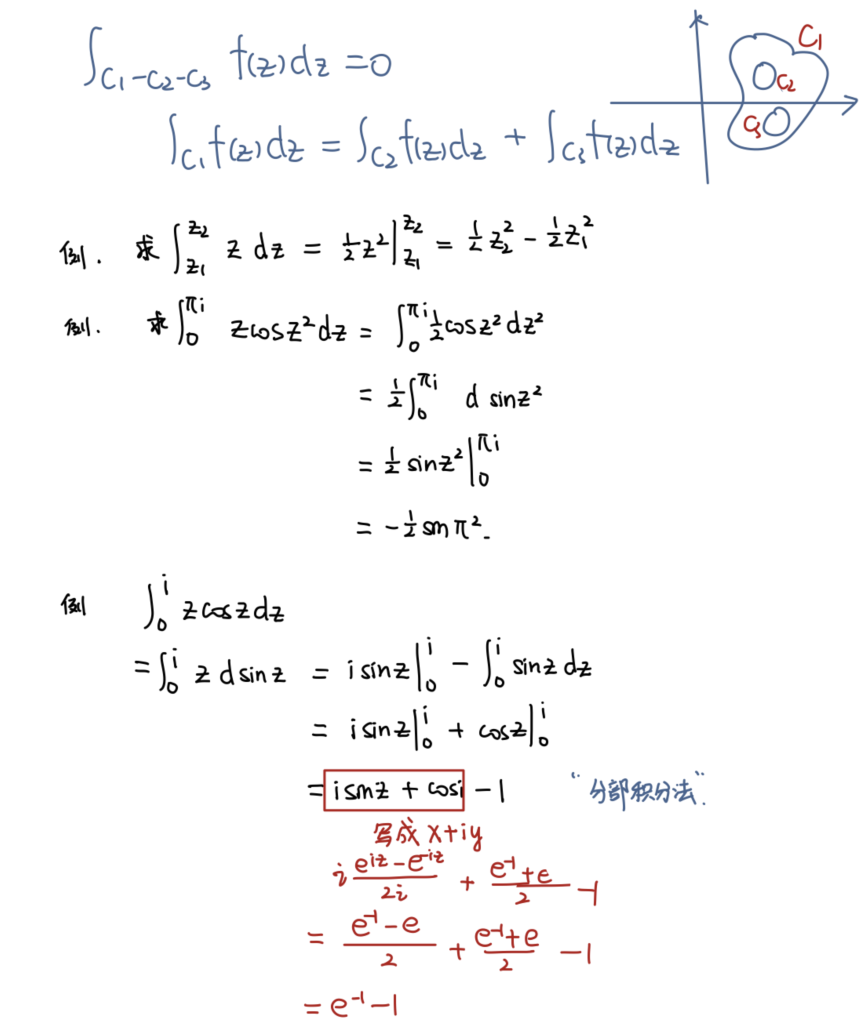 ∫_{C1-C2-C3} f(z)dz = 0
C1
C2
C3
∫_{C1} f(z)dz = ∫_{C2} f(z)dz + ∫_{C3} f(z)dz
例. 求 ∫_{z1}^{z2} z dz = ½z²|_{z1}^{z2} = ½z₂² - ½z₁²
例. 求 ∫_0^{πi} zcosz²dz = ∫_0^{πi} ½cosz²dz²
= ½∫_0^{πi} d sinz²
= ½ sinz²|_0^{πi}
= -½ sinπ².
例 ∫_0^i zcoszdz
= ∫_0^i z dsinz = isinz|_0^i - ∫_0^i sinz dz
= isinz|_0^i + cosz|_0^i
= isinz + cosi - 1 "分部积分法".
写成 x+iy
i (e^{iz} - e^{-iz})/2i + (e^{-1}+e)/2 - 1
= (e^{-1} - e)/2 + (e^{-1}+e)/2 - 1
= e^{-1} - 1